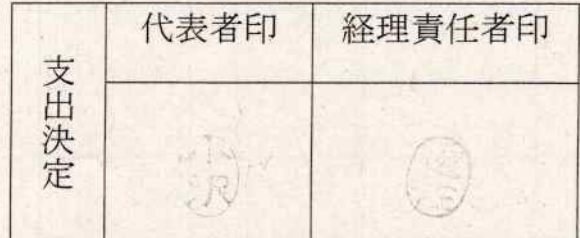 支出決定
代表者印
経理責任者印
小沢